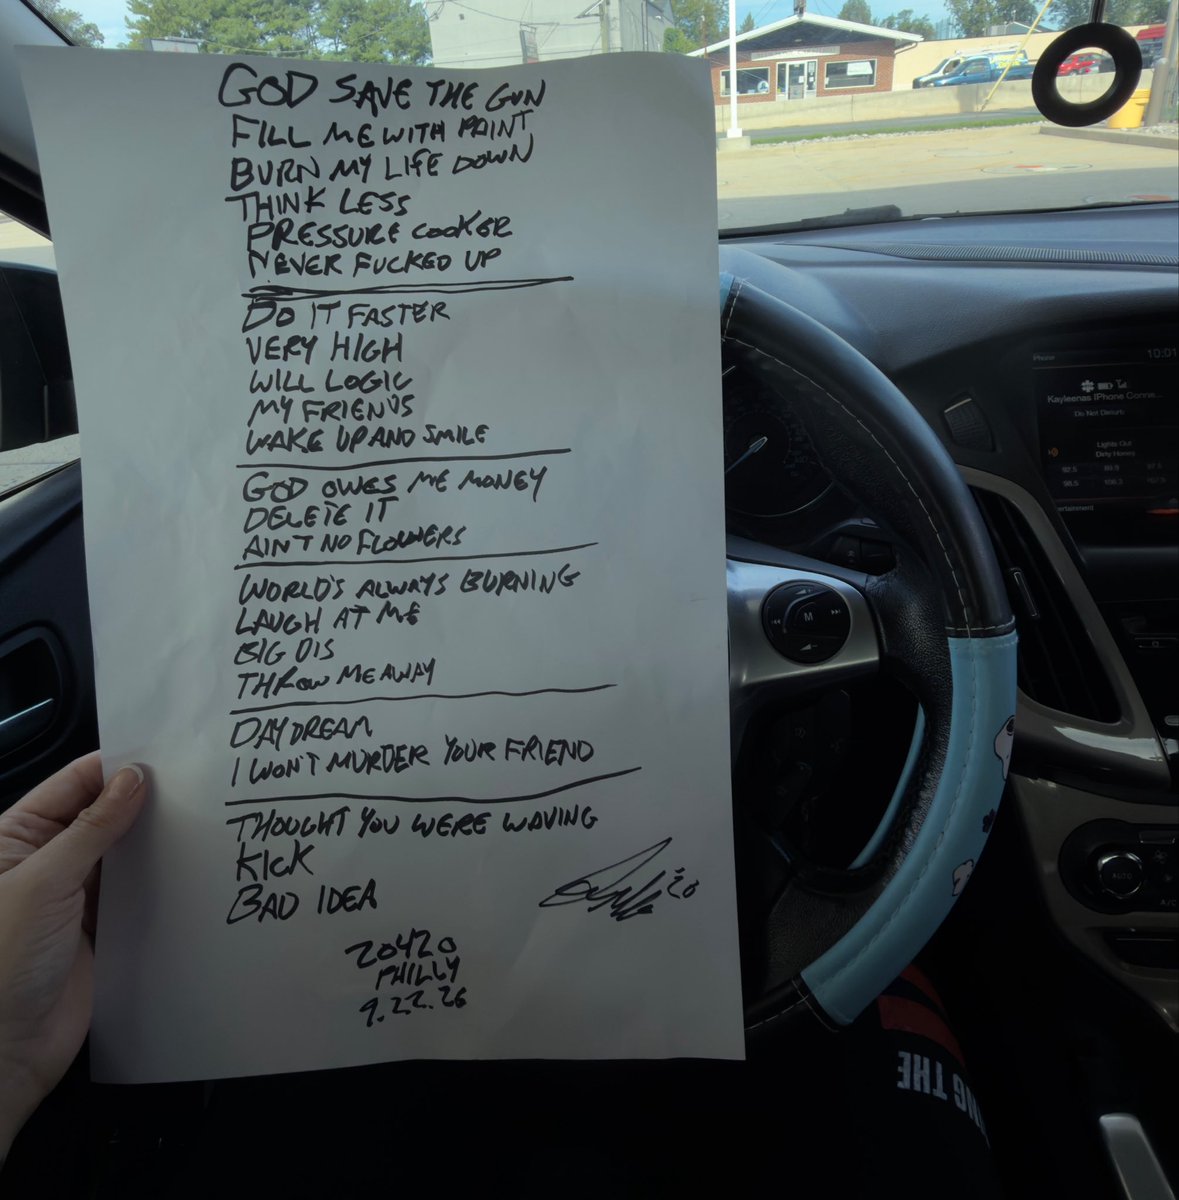 GOD SAVE THE GUN
FILL ME WITH PAINT
BURN MY LIFE DOWN
THINK LESS
PRESSURE COOKER
NEVER FUCKED UP
DO IT FASTER
VERY HIGH
WILL LOGIC
MY FRIENDS
WAKE UP AND SMILE
GOD OWES ME MONEY
DELETE IT
AIN'T NO FLOWERS
WORLD'S ALWAYS BURNING
LAUGH AT ME
BIG DIS
THROW ME AWAY
DAYDREAM
I WON'T MURDER YOUR FRIEND
THOUGHT YOU WERE WAVING
KICK
BAD IDEA
20420
PHILLY
9.22.26
10:01
Kayleenas IPhone Conne...
Do Not Disturb
Lights Out
Dirty Honey
92.5
98.5
ertainment
M
AUTO
A/C
NG THE